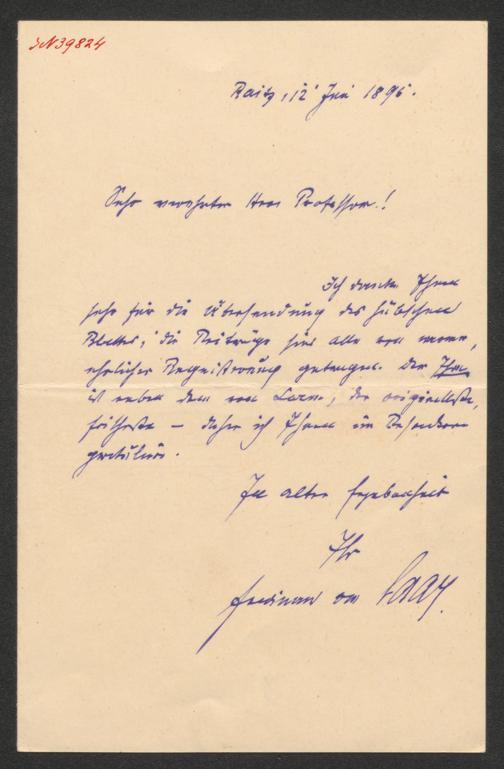 JN 39824
Raitz, 12 Juni 1896.
Sehr verehrter Herr Professor!
Ich danke Ihnen
sehr für die Übersendung des hübschen
Blattes; die Beiträge sind alle von warmer,
ehrlicher Begeisterung getragen. Der Ihre
ist neben dem von, der originellste,
– daher ich Ihnen im Besondern
gratulire.
In alter Ergebenheit
Ihr
Ferdinand von Saar.